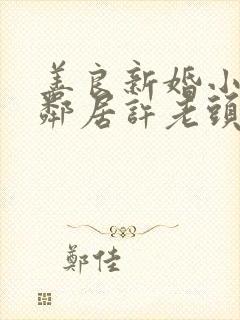 美良新婚小
鄰居許老頭
鄭佳